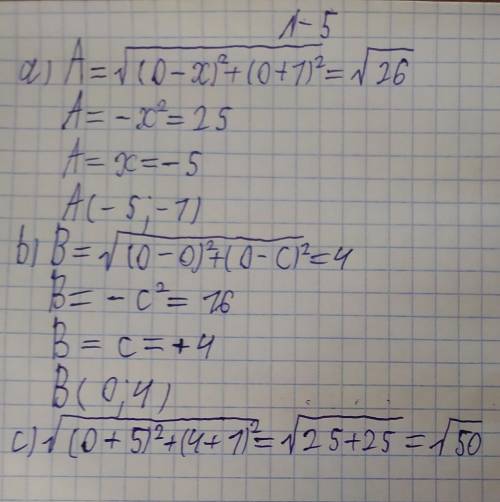 1-5
a) A = √(0-x)²+(0+1)² = √26
A = -x² = 25
A = x = -5
A(-5;-1)
b) B = √(0-0)²+(0-c)² = 4
B = -c² = 16
B = c = +4
B(0;4)
c) √(0+5)²+(4+1)² = √25+25 = √50